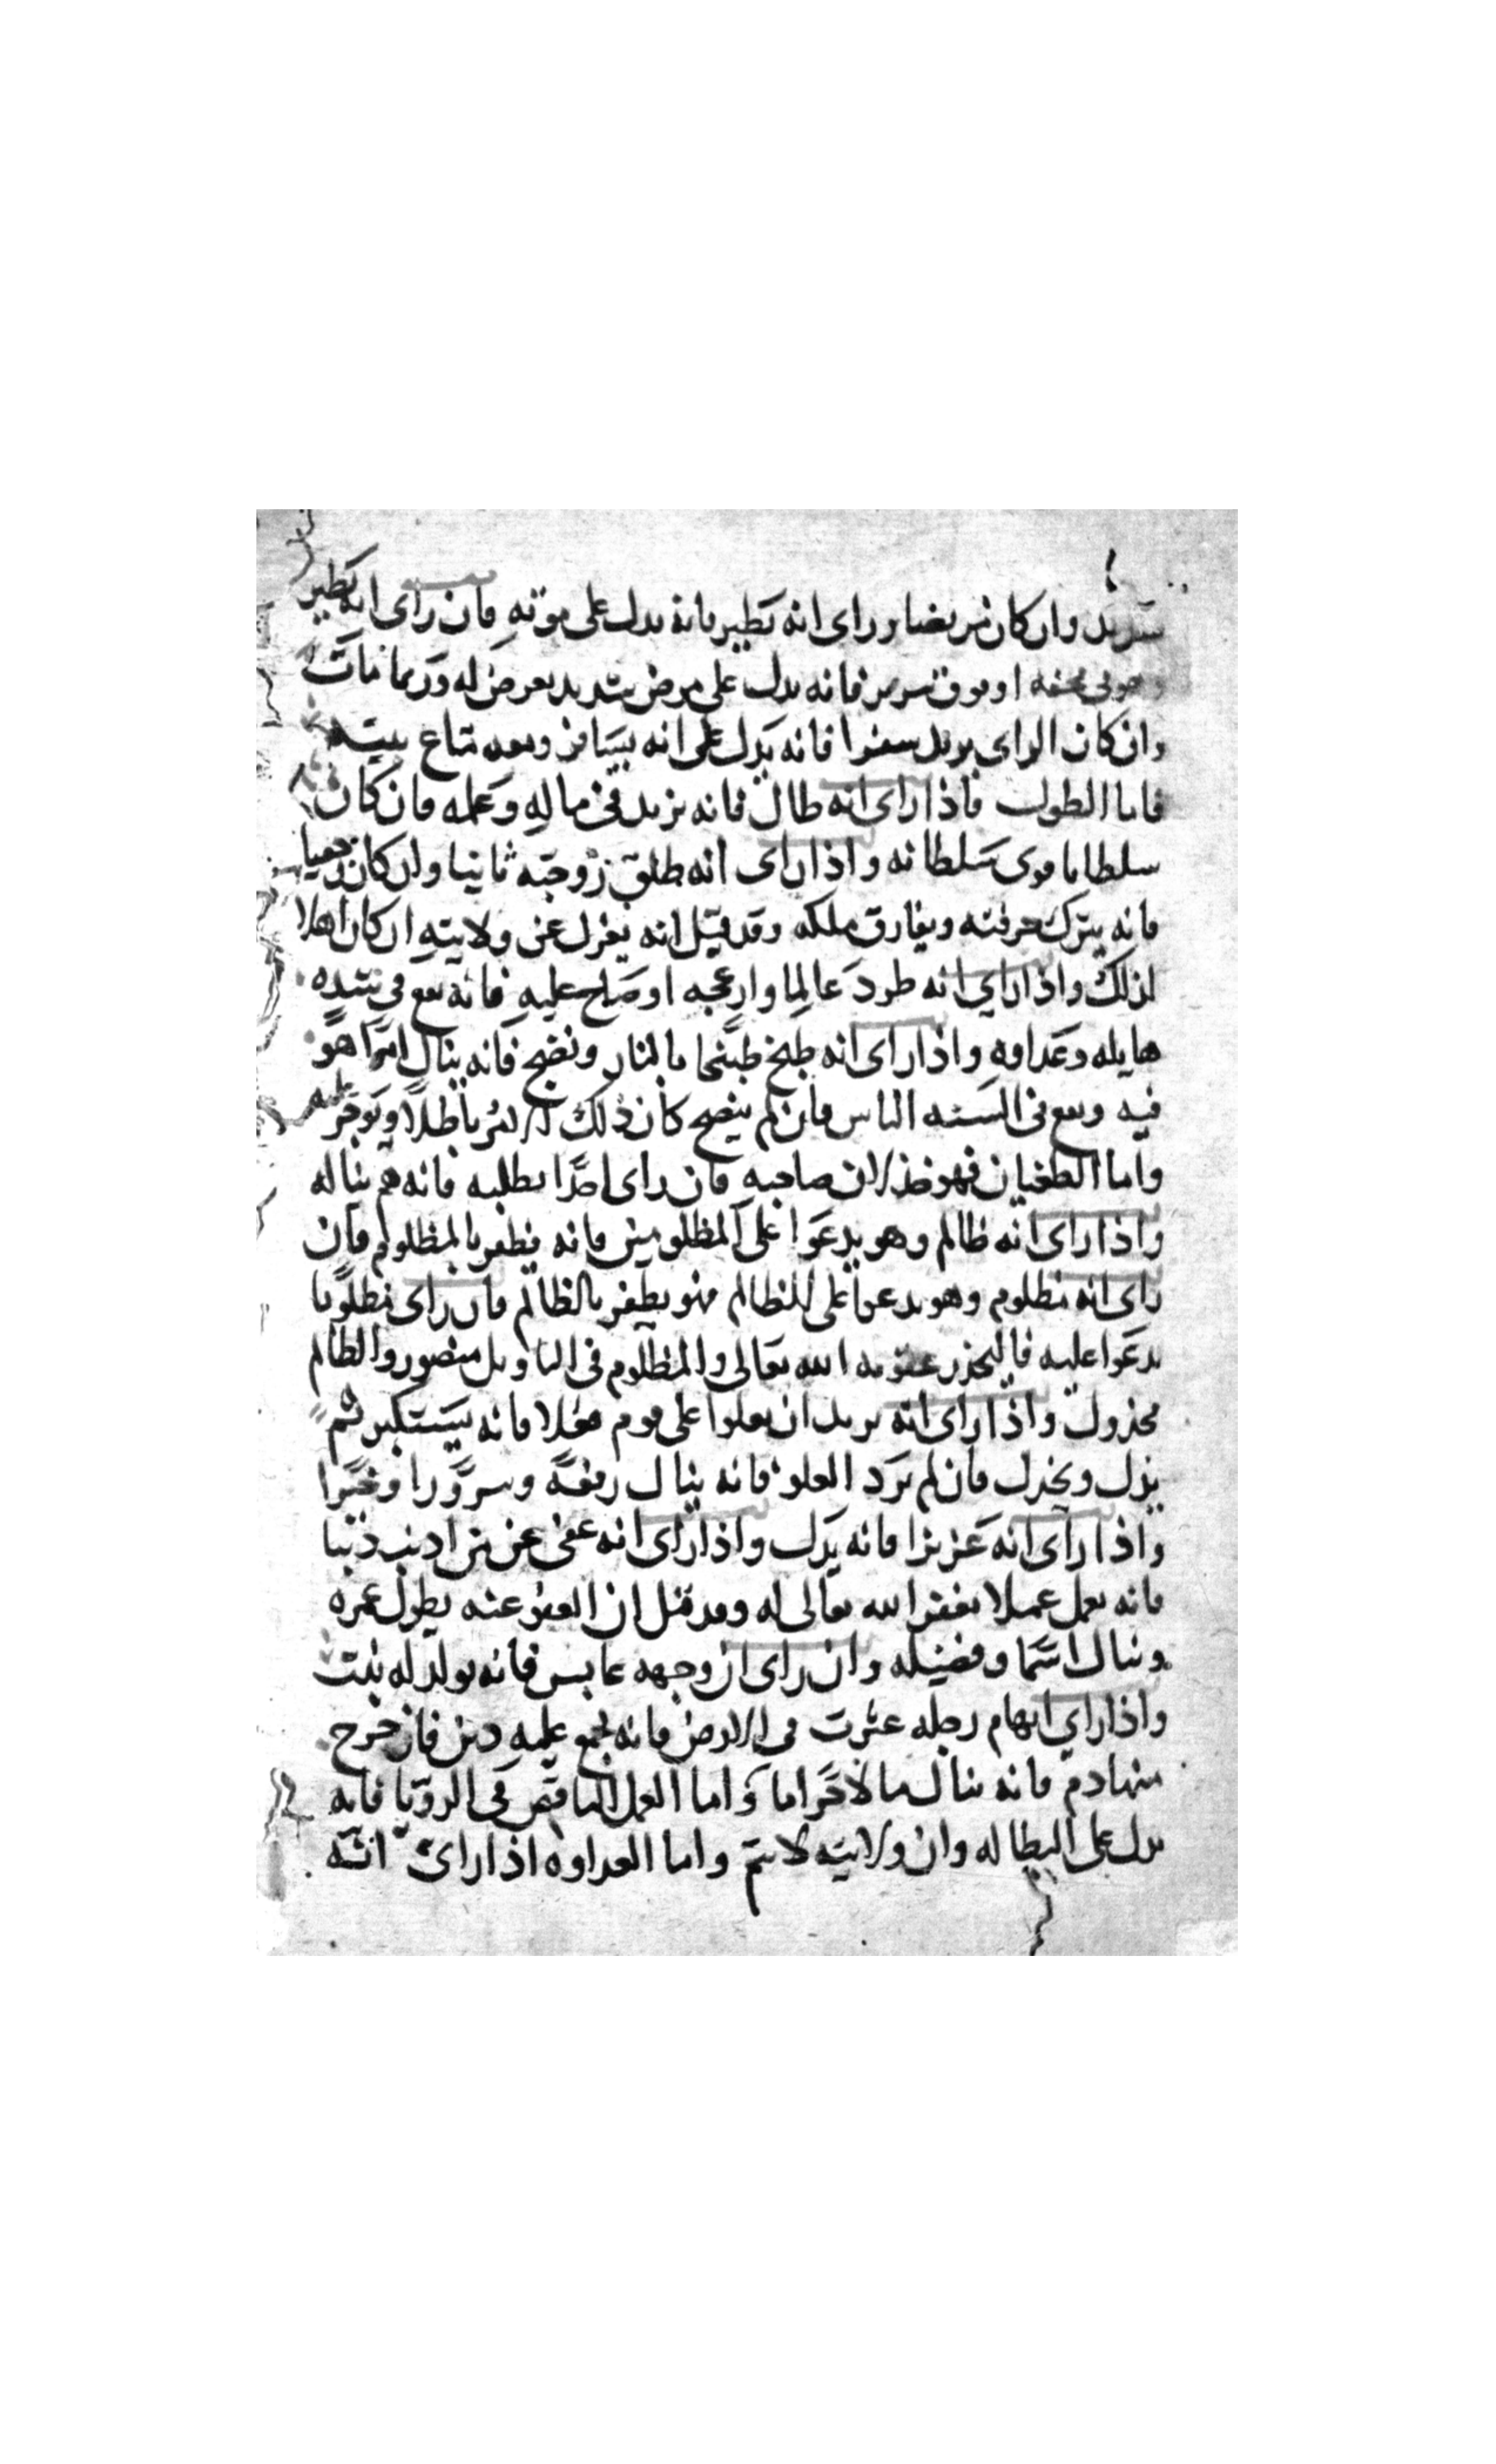 سريد وان كان مريضا ورراى انه تطير فانه يدل على موته فان راى انه تطير
وهو في محفه او فوق سرير فانه يدل على مرض شديد يعرض له وربما مات
وان كان الراى يريد سفرا فانه يدل على انه يسافر ومعه متاع بيته
فاما الطول فاذا راى انه طال فانه يزيد في ماله وعمله فان كان
سلطانا قوى سلطانه واذا راى انه طلق زوجته ثانيا وان كان
فانه يترك حرفته ويفارق ملكه وقد قيل انه يعزل عن ولايته ان كان اهلا
لذلك واذا راي انه طرد عالما وازعجه او صاح عليه فانه يقع في شده
هايله وعداوه واذا راى انه طبخ طبخا بالنار ونضج فانه ينال امرا هو
فيه ويقع في السنه الناس فان لم ينضج كان ذلك الامر باطلا ويوجر عليه
واما الطغيان فهو خذلان صاحبه فان راى احدا يطلبه فانه هم يناله
واذا راى انه ظالم وهو يدعوا على المظلومين فانه يظفر بالمظلوم فان
راى انه مظلوم وهو يدعوا على الظالم فهو يظفر بالظالم فان راى مظلوما
يدعوا عليه فاليحذر عقوبه الله تعالى والمظلوم في التاويل منصور والظالم
مخذول واذا راى انه يريد ان يعلوا على قوم فعلا فانه يستكبر ثم
يذل ويخذل فان لم يرد العلو فانه ينال رفعة وسرورا وخيرا
واذا راى انه عزيزا فانه يذل واذا راى انه عفى عن من اذنب ذنبا
فانه يعمل عملا يغفر الله تعالى له وقد قيل ان العفو عنه يطول عمره
وينال اسما وفضيله وان راى ان وجهه عابس فانه يولد له بنت
واذا راي ابهام رجله عثرت في الارض فانه يجمع عليه دين فان خرج
منها دم فانه ينال مالا حراما واما العمل الناقص في الرويا فانه
يدل على البطاله وان ولايته لا تتم واما العداوه اذا راى انه